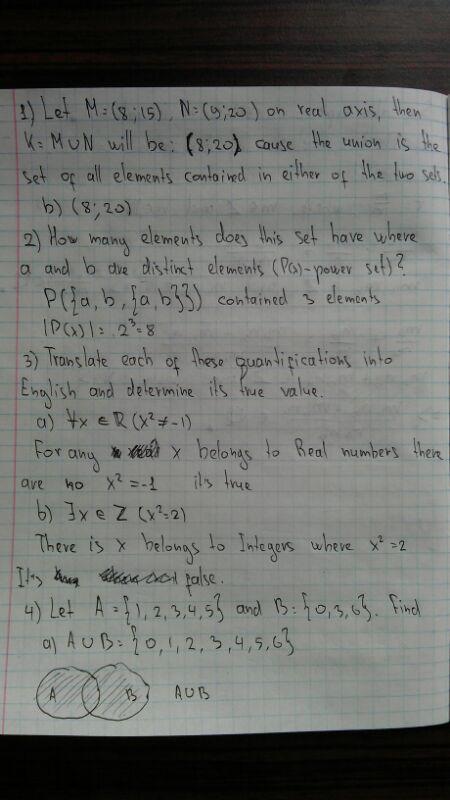 1) Let M=(8;15), N=(9;20) on real axis, then
K=M∪N will be: (8;20) cause the union is the
set of all elements contained in either of the two sets.
b) (8;20)
2) How many elements does this set have where
a and b are distinct elements (P(x)-power set)?
P({a,b,{a,b}}) contained 3 elements
|P(x)|= 2³=8
3) Translate each of these quantifications into
English and determine its true value.
a) ∀x ∈ R (x²≠-1)
For any x belongs to Real numbers there
are no x²=-1 it's true
b) ∃x ∈ Z (x²=2)
There is x belongs to Integers where x²=2
It's false.
4) Let A={1,2,3,4,5} and B={0,3,6}. Find
a) A∪B={0,1,2,3,4,5,6}
A B A∪B